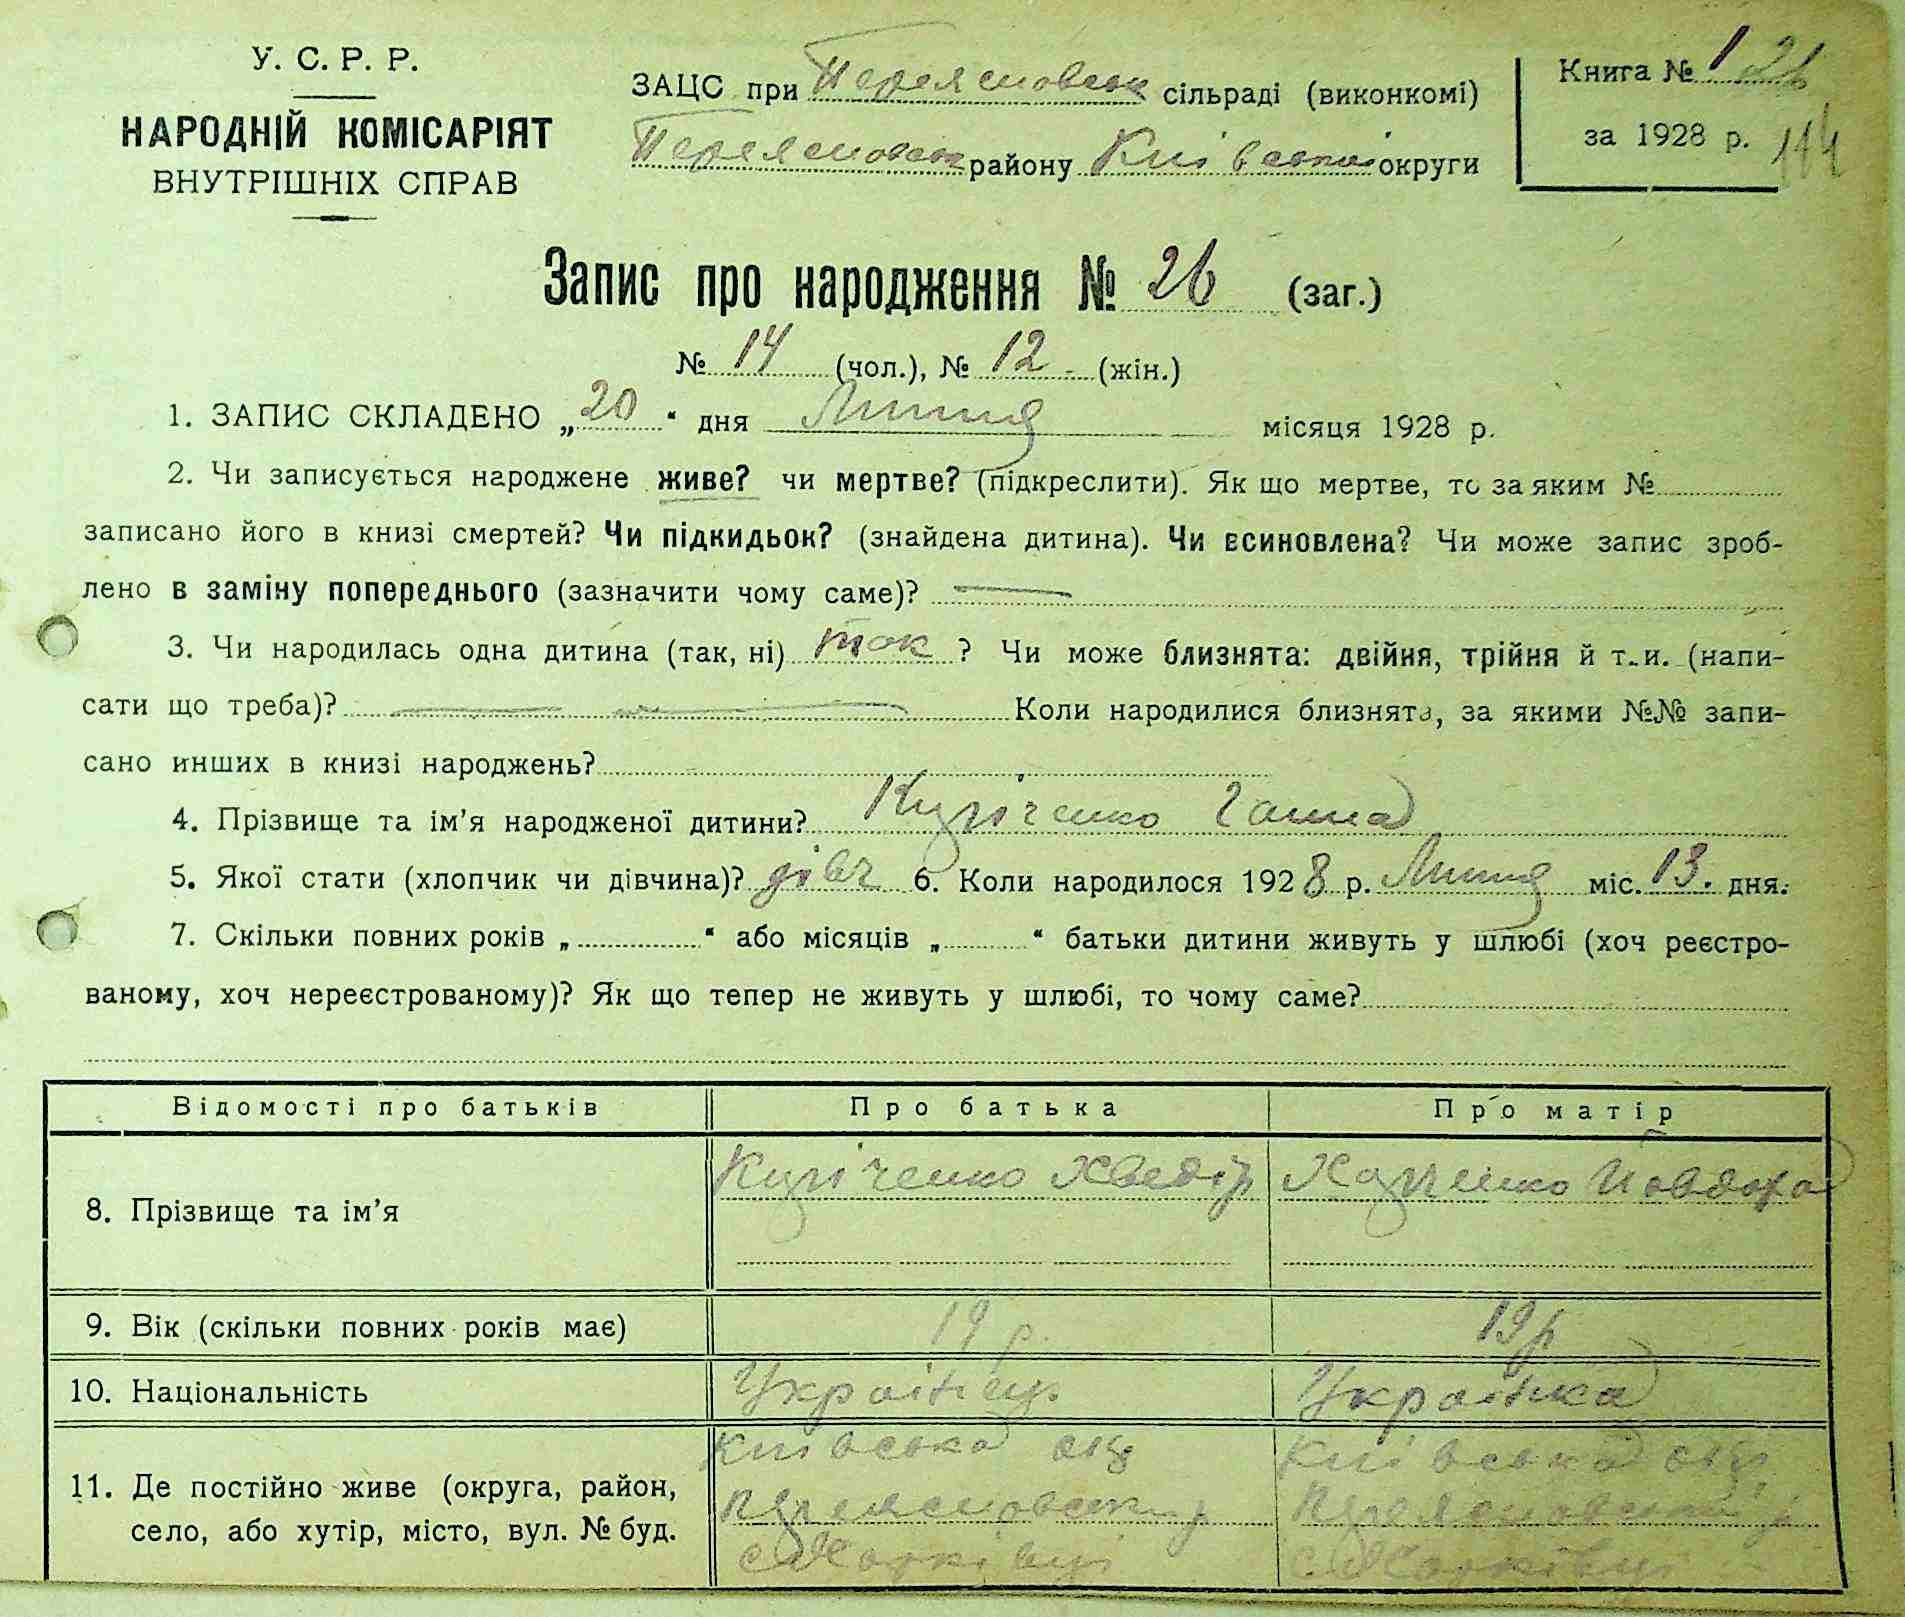 У. С. Р. Р.
НАРОДНІЙ КОМІСАРІЯТ
ВНУТРІШНІХ СПРАВ
ЗАЦС при Переяславськ сільраді (виконкомі)
Переяславськ району Київської округи
Книга № 1 26
за 1928 р. 114
Запис про народження № 26 (заг.)
№ 14 (чол.), № 12 (жін.)
1. ЗАПИС СКЛАДЕНО „20“ дня Липня місяця 1928 р.
2. Чи записується народжене живе? чи мертве? (підкреслити). Як що мертве, то за яким №
записано його в книзі смертей? Чи підкидьок? (знайдена дитина). Чи всиновлена? Чи може запис зроб-
лено в заміну попереднього (зазначити чому саме)? —
3. Чи народилась одна дитина (так, ні) так ? Чи може близнята: двійня, трійня й т. и. (напи-
сати що треба)? — — Коли народилися близнята, за якими №№ запи-
сано инших в книзі народжень?
4. Прізвище та ім'я народженої дитини? Кузіченко Ганна
5. Якої стати (хлопчик чи дівчина)? дівч 6. Коли народилося 1928 р. Липня міс. 13. дня.
7. Скільки повних років „ “ або місяців „ “ батьки дитини живуть у шлюбі (хоч реєстро-
ваному, хоч нереєстрованому)? Як що тепер не живуть у шлюбі, то чому саме?
Відомості про батьків Про батька Про матір
8. Прізвище та ім'я Кузіченко Хведір Йовдоха
9. Вік (скільки повних років має) 19 р. 19 р
10. Національність Українець Українка
11. Де постійно живе (округа, район, село, або хутір, місто, вул. № буд.
Київська окр Київська окр
Переяславськ р Переяславський р
с. Хоцківці с. Хоцківці